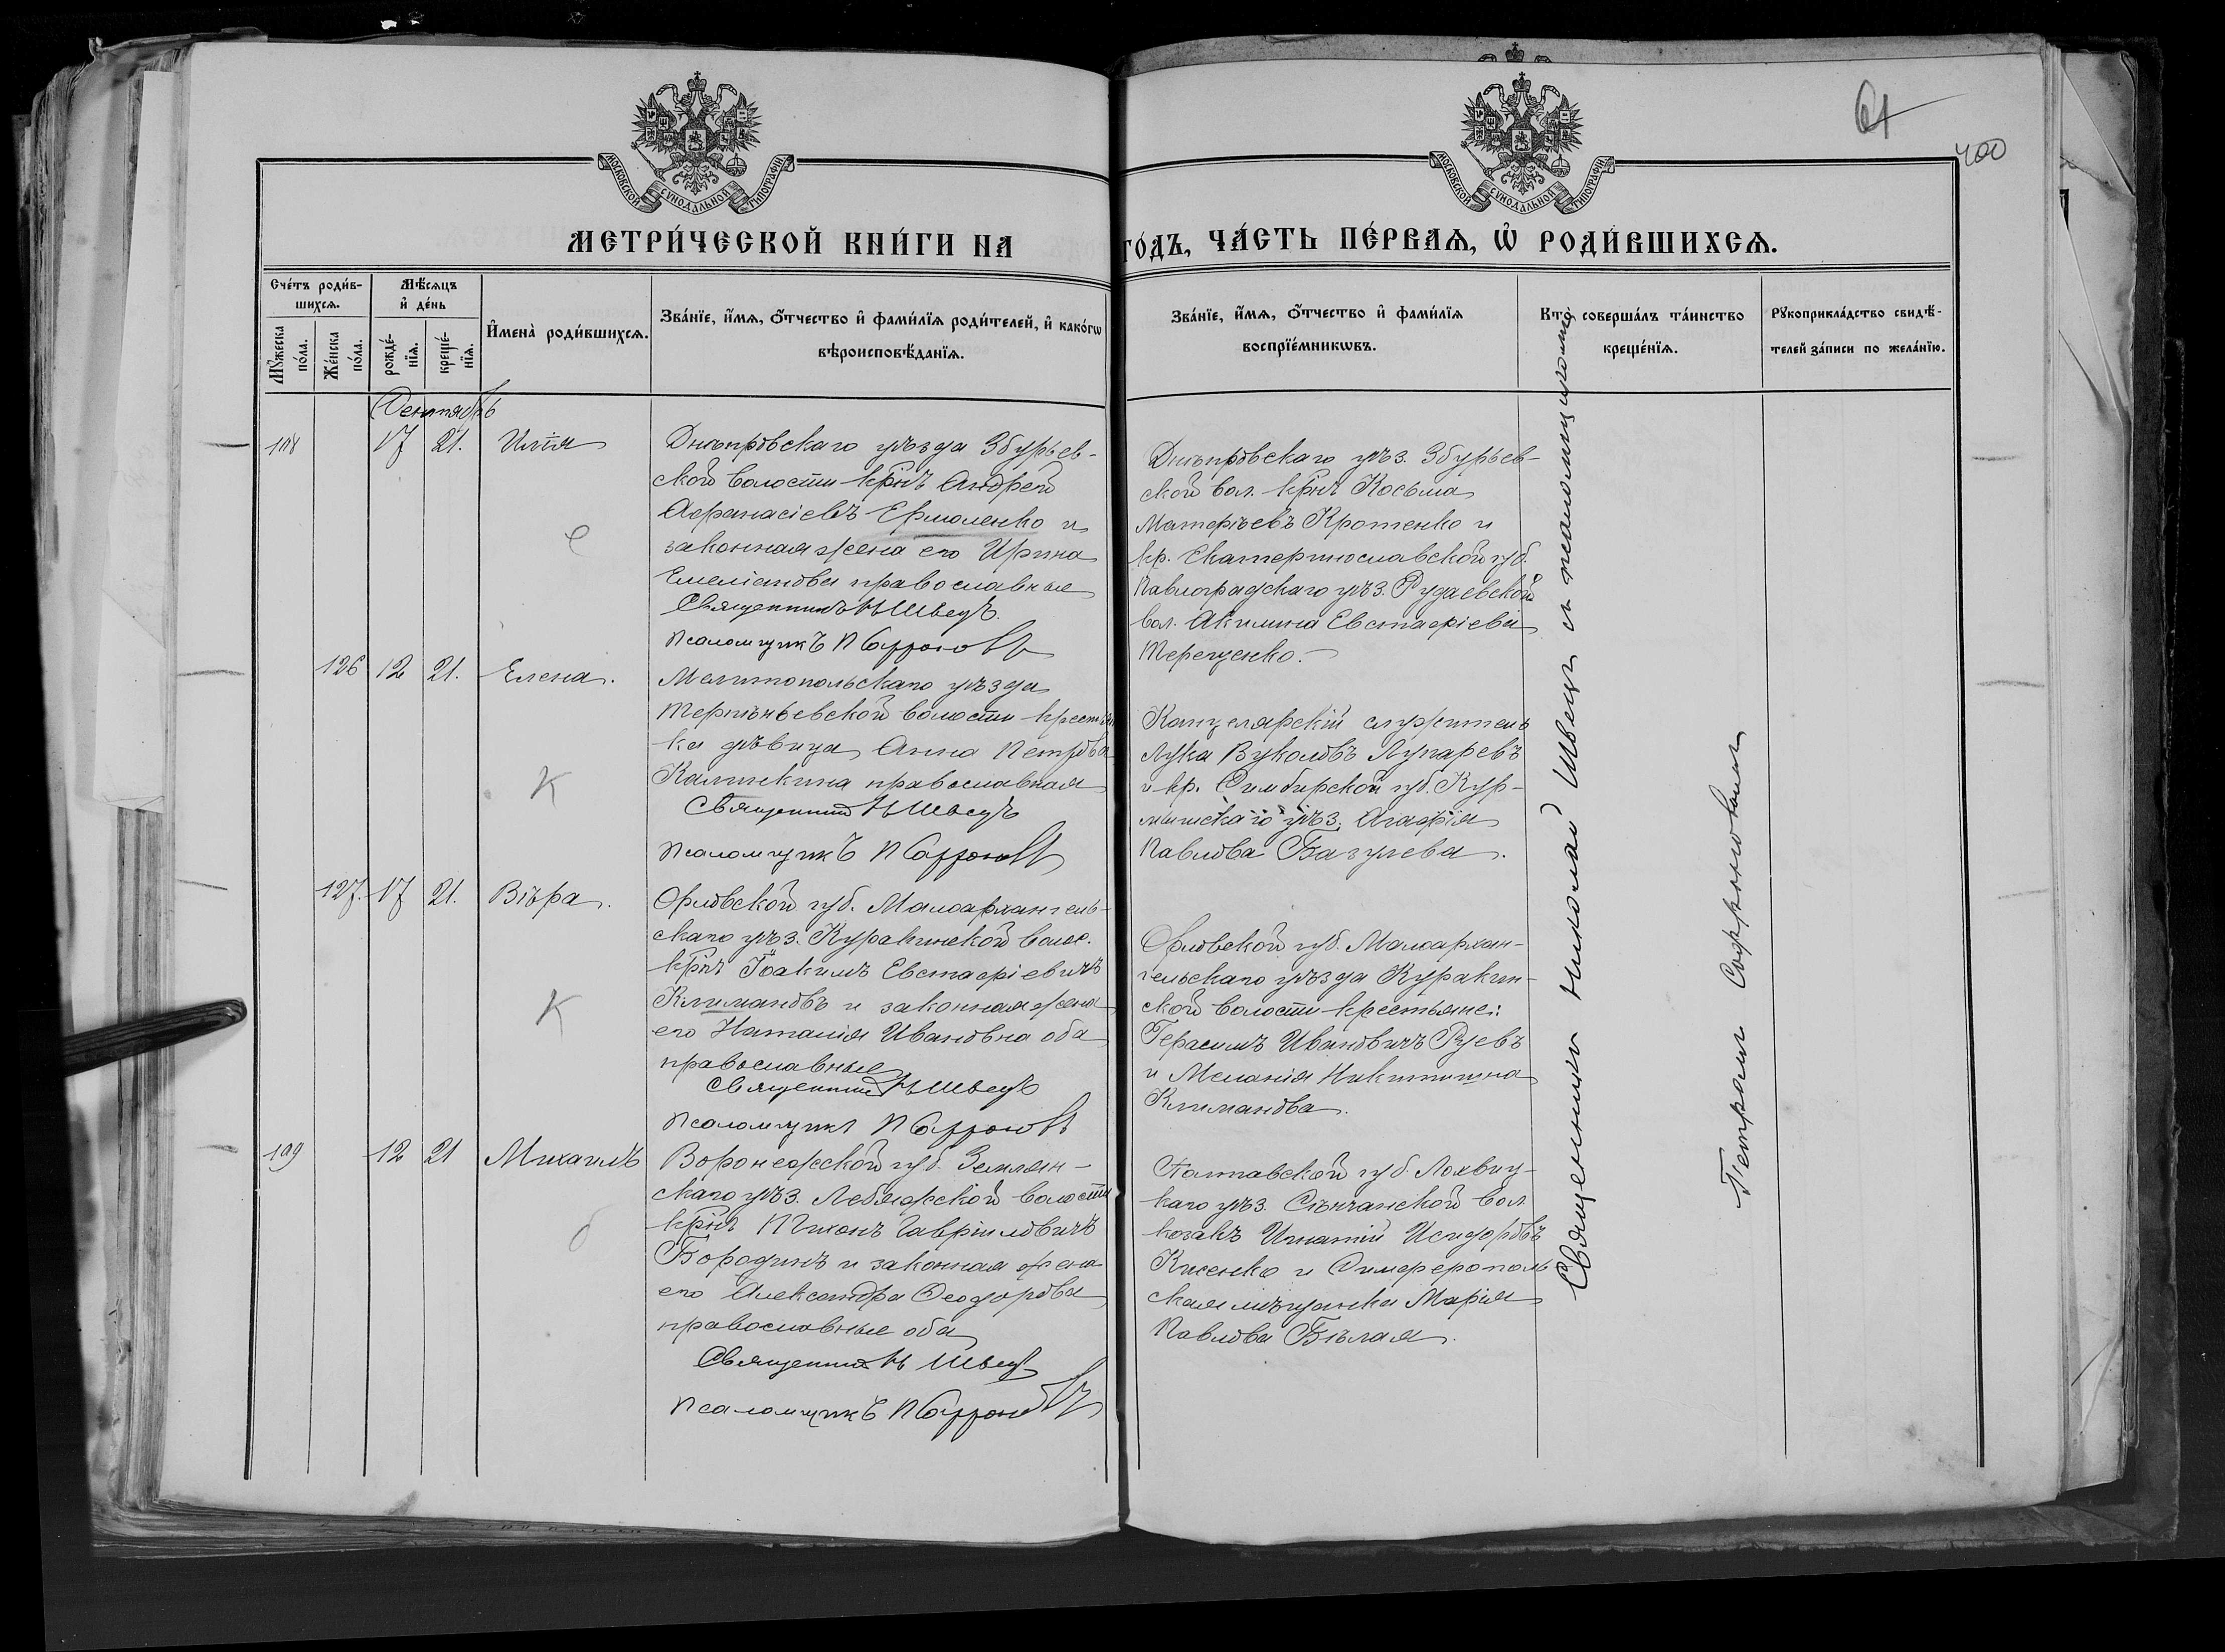 61
400
МОСКОВСКОЙ СѴНОДАЛЬНОЙ ТИПОГРАФІИ
МОСКОВСКОЙ СѴНОДАЛЬНОЙ ТИПОГРАФІИ
МЕТРИ́ЧЕСКОЙ КНИ́ГИ НА
ГО́ДЪ, ЧА́СТЬ ПЕ́РВАѦ, Ѡ҆ РОДИ́ВШИХСѦ.
Сче́тъ роди́в-
шихсѧ.
Мꙋ́жеска
по́ла.
Же́нска
по́ла.
Мѣ́сѧцъ
и҆ де́нь
рожде́-
нїѧ.
креще́-
нїѧ.
И҆мена̀ роди́вшихсѧ.
Зва́нїе, и҆́мѧ, ѻ҆́тчество и҆ фами́лїѧ роди́телей, и҆ како́гѡ
вѣроисповѣ́данїѧ.
Зва́нїе, и҆́мѧ, ѻ҆́тчество и҆ фами́лїѧ
воспрїе́мникѡвъ.
Кто̀ соверша́лъ та́инство
креще́нїѧ.
Рꙋкоприкла́дство свидѣ́-
телей за́писи по жела́нїю.
Сентябрь
108 17 21. Илія
Днѣпровскаго уѣзда Збурьев-
ской волости крнъ Андрей
Афанасіевъ Ермоленко и
законная жена его Ирина
Емеліанова православные
Священникъ Н Швецъ
Псаломщикъ П Софроновъ
Днѣпровскаго уѣз. Збурьев-
ской вол. крнъ Косьма
Матфіевъ Кротенко и
кр. Екатеринославской губ.
Павлоградскаго уѣз. Рудаевской
вол. Акилина Евстафіева
Терещенко.
е
126 12 21. Елена.
Мелитопольскаго уѣзда
Терпѣньевской волости крестьян
ка дѣвица Анна Петрова
Калинкина православная
Священник Н Швецъ
Псаломщикъ П Софроновъ
Канцелярскій служитель
Лука Вуколовъ Лупаревъ
и кр. Симбирской губ. Кур-
мышскаго уѣз. Агафія
Павлова Багулева.
К
127. 17 21. Вѣра.
Орловской губ. Малоархангель-
скаго уѣз. Куракинской волос.
крнъ Іоакимъ Евстафіевичъ
Климановъ и законная жена
его Наталія Ивановна оба
православные
Священник Н Швецъ
Псаломщикъ П Софроновъ
Орловской губ. Малоархан-
гельскаго уѣзда Куракин-
ской волости крестьяне:
Герасимъ Ивановичъ Руевъ
и Меланія Никитишна
Климанова.
К
109 12 21 Михаилъ
Воронежской губ. Землян-
скаго уѣз. Лебяжской волости
крнъ Тихонъ Гавріиловичъ
Бородинъ и законная жена
его Александра Ѳеодорова
православные оба
Священник Н Швецъ
Псаломщикъ П Софроновъ
Полтавской губ. Лохвиц-
каго уѣз. Сѣнчанской вол
козакъ Игнатій Исидоровъ
Кисенко и Симферополь
ская мѣщанка Марія
Павлова Бѣлая.
б
Священникъ Николай Швецъ съ псаломщикомъ
Петромъ Софроновымъ